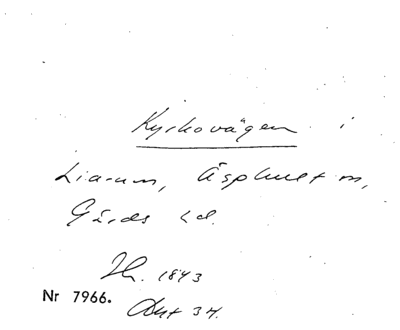 Kyrkovägen i
Liarum, Äsphult sn,
Gärds hd.
Th. 1843
Nr 7966.
Akt 34.